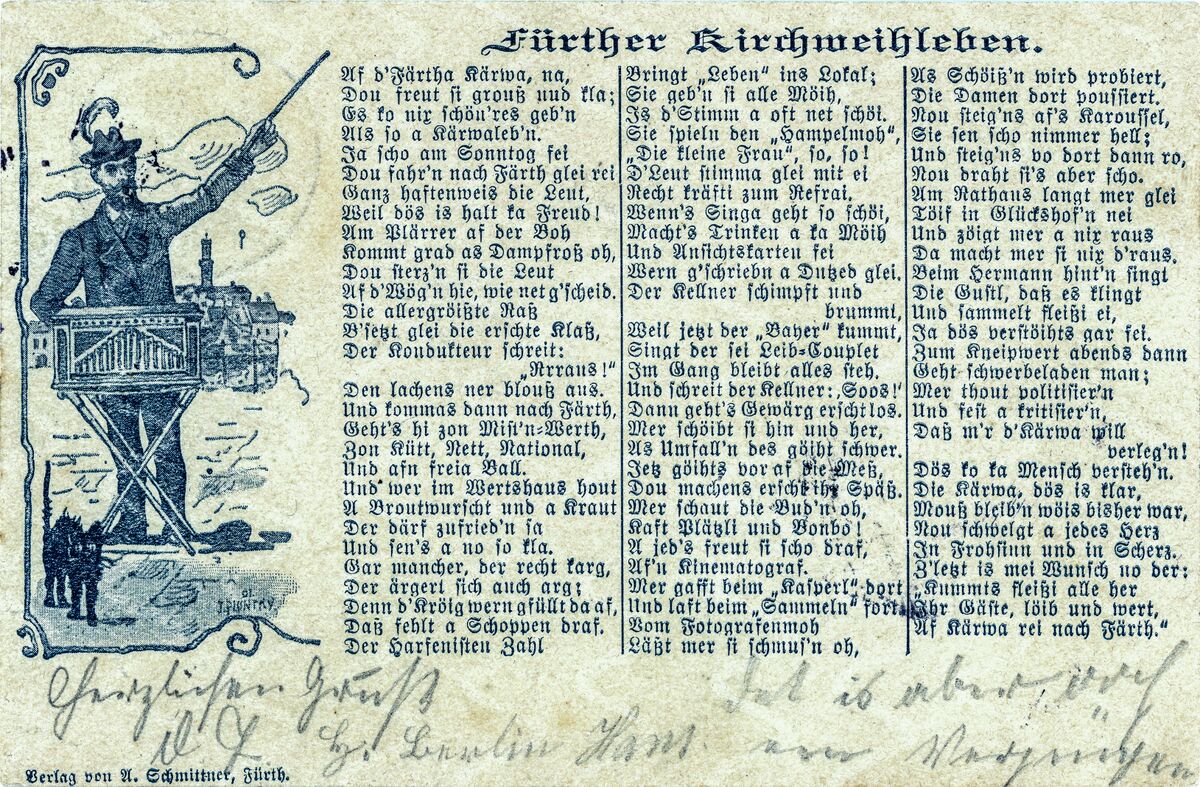 Fürther Kirchweihleben.
Af d'Färtha Kärwa, na,
Dou freut si grouß und kla;
Es ko nix schön'res geb'n
Als so a Kärwaleb'n.
Ja scho am Sonntog fei
Dou fahr'n nach Färth glei rei
Ganz haftenweis die Leut,
Weil dös is halt ka Freud!
Am Plärrer af der Boh
Kommt grad as Dampfroß oh,
Dou sterz'n si die Leut
Af d'Wög'n hie, wie net g'scheid.
Die allergröißte Raß
B'setzt glei die erschte Klaß,
Der Kondukteur schreit:
„Rrraus!"
Den lachens ner blouß aus.
Und kommas dann nach Färth,
Geht's hi zon Misi'n-Werth,
Zon Kütt, Nett, National,
Und afn freia Ball.
Und wer im Wertshaus hout
A Broutwurscht und a Kraut
Der därf zufried'n sa
Und sen's a no so kla.
Gar mancher, der recht karg,
Der ärgerl sich auch arg;
Denn d'Kröig wern gfüllt da af,
Daß fehlt a Schoppen draf.
Der Harfenisten Zahl
Bringt „Leben" ins Lokal;
Sie geb'n si alle Möih,
Is d'Stimm a oft net schöi.
Sie spieln den „Hampelmoh",
„Die kleine Frau", so, so!
D'Leut stimma glei mit ei
Recht kräfti zum Refrai.
Wenn's Singa geht so schöi,
Macht's Trinken a ka Möih
Und Ansichtskarten fei
Wern g'schriebn a Dutzed glei.
Der Kellner schimpft und
brummt,
Weil jetzt der „Bayer" kummt,
Singt der sei Leib-Couplet
Im Gang bleibt alles steh.
Und schreit der Kellner: „Soos!'
Dann geht's Gewärg erscht los.
Mer schöibt si hin und her,
As Umfall'n des göiht schwer.
Jetz göihts vor af die Meß,
Dou machens erscht ihr Späß.
Mer schaut die Bud'n oh,
Kaft Plätzli und Bonbo!
A jed's freut si scho draf,
Af'n Kinematograf.
Mer gafft beim „Kasperl" dort
Und laft beim „Sammeln" fort.
Vom Fotografenmoh
Läßt mer si schmus'n oh,
As Schöiß'n wird probiert,
Die Damen dort poussiert.
Nou steig'ns af's Karoussel,
Sie sen scho nimmer hell;
Und steig'ns vo dort dann ro,
Nou draht si's aber scho.
Am Rathaus langt mer glei
Töif in Glückshof'n nei
Und zöigt mer a nix raus
Da macht mer si nix d'raus.
Beim Hermann hint'n singt
Die Gustl, daß es klingt
Und sammelt fleißi ei,
Ja dös verstöihts gar fei.
Zum Kneipwert abends dann
Geht schwerbeladen man;
Mer thout politisier'n
Und fest a kritisier'n,
Daß m'r d'Kärwa will
verleg'n!
Dös ko ka Mensch versteh'n.
Die Kärwa, dös is klar,
Mouß bleib'n wöis bisher war,
Nou schwelgt a jedes Herz
In Frohsinn und in Scherz.
Z'letzt is mei Wunsch no der:
„Kummts fleißi alle her
Ihr Gäste, löib und wert,
Af Kärwa rei nach Färth."
Herzlichen Gruß
det is aber och
Berlin Hans.
een Vergnügen
Verlag von A. Schmittner, Fürth.